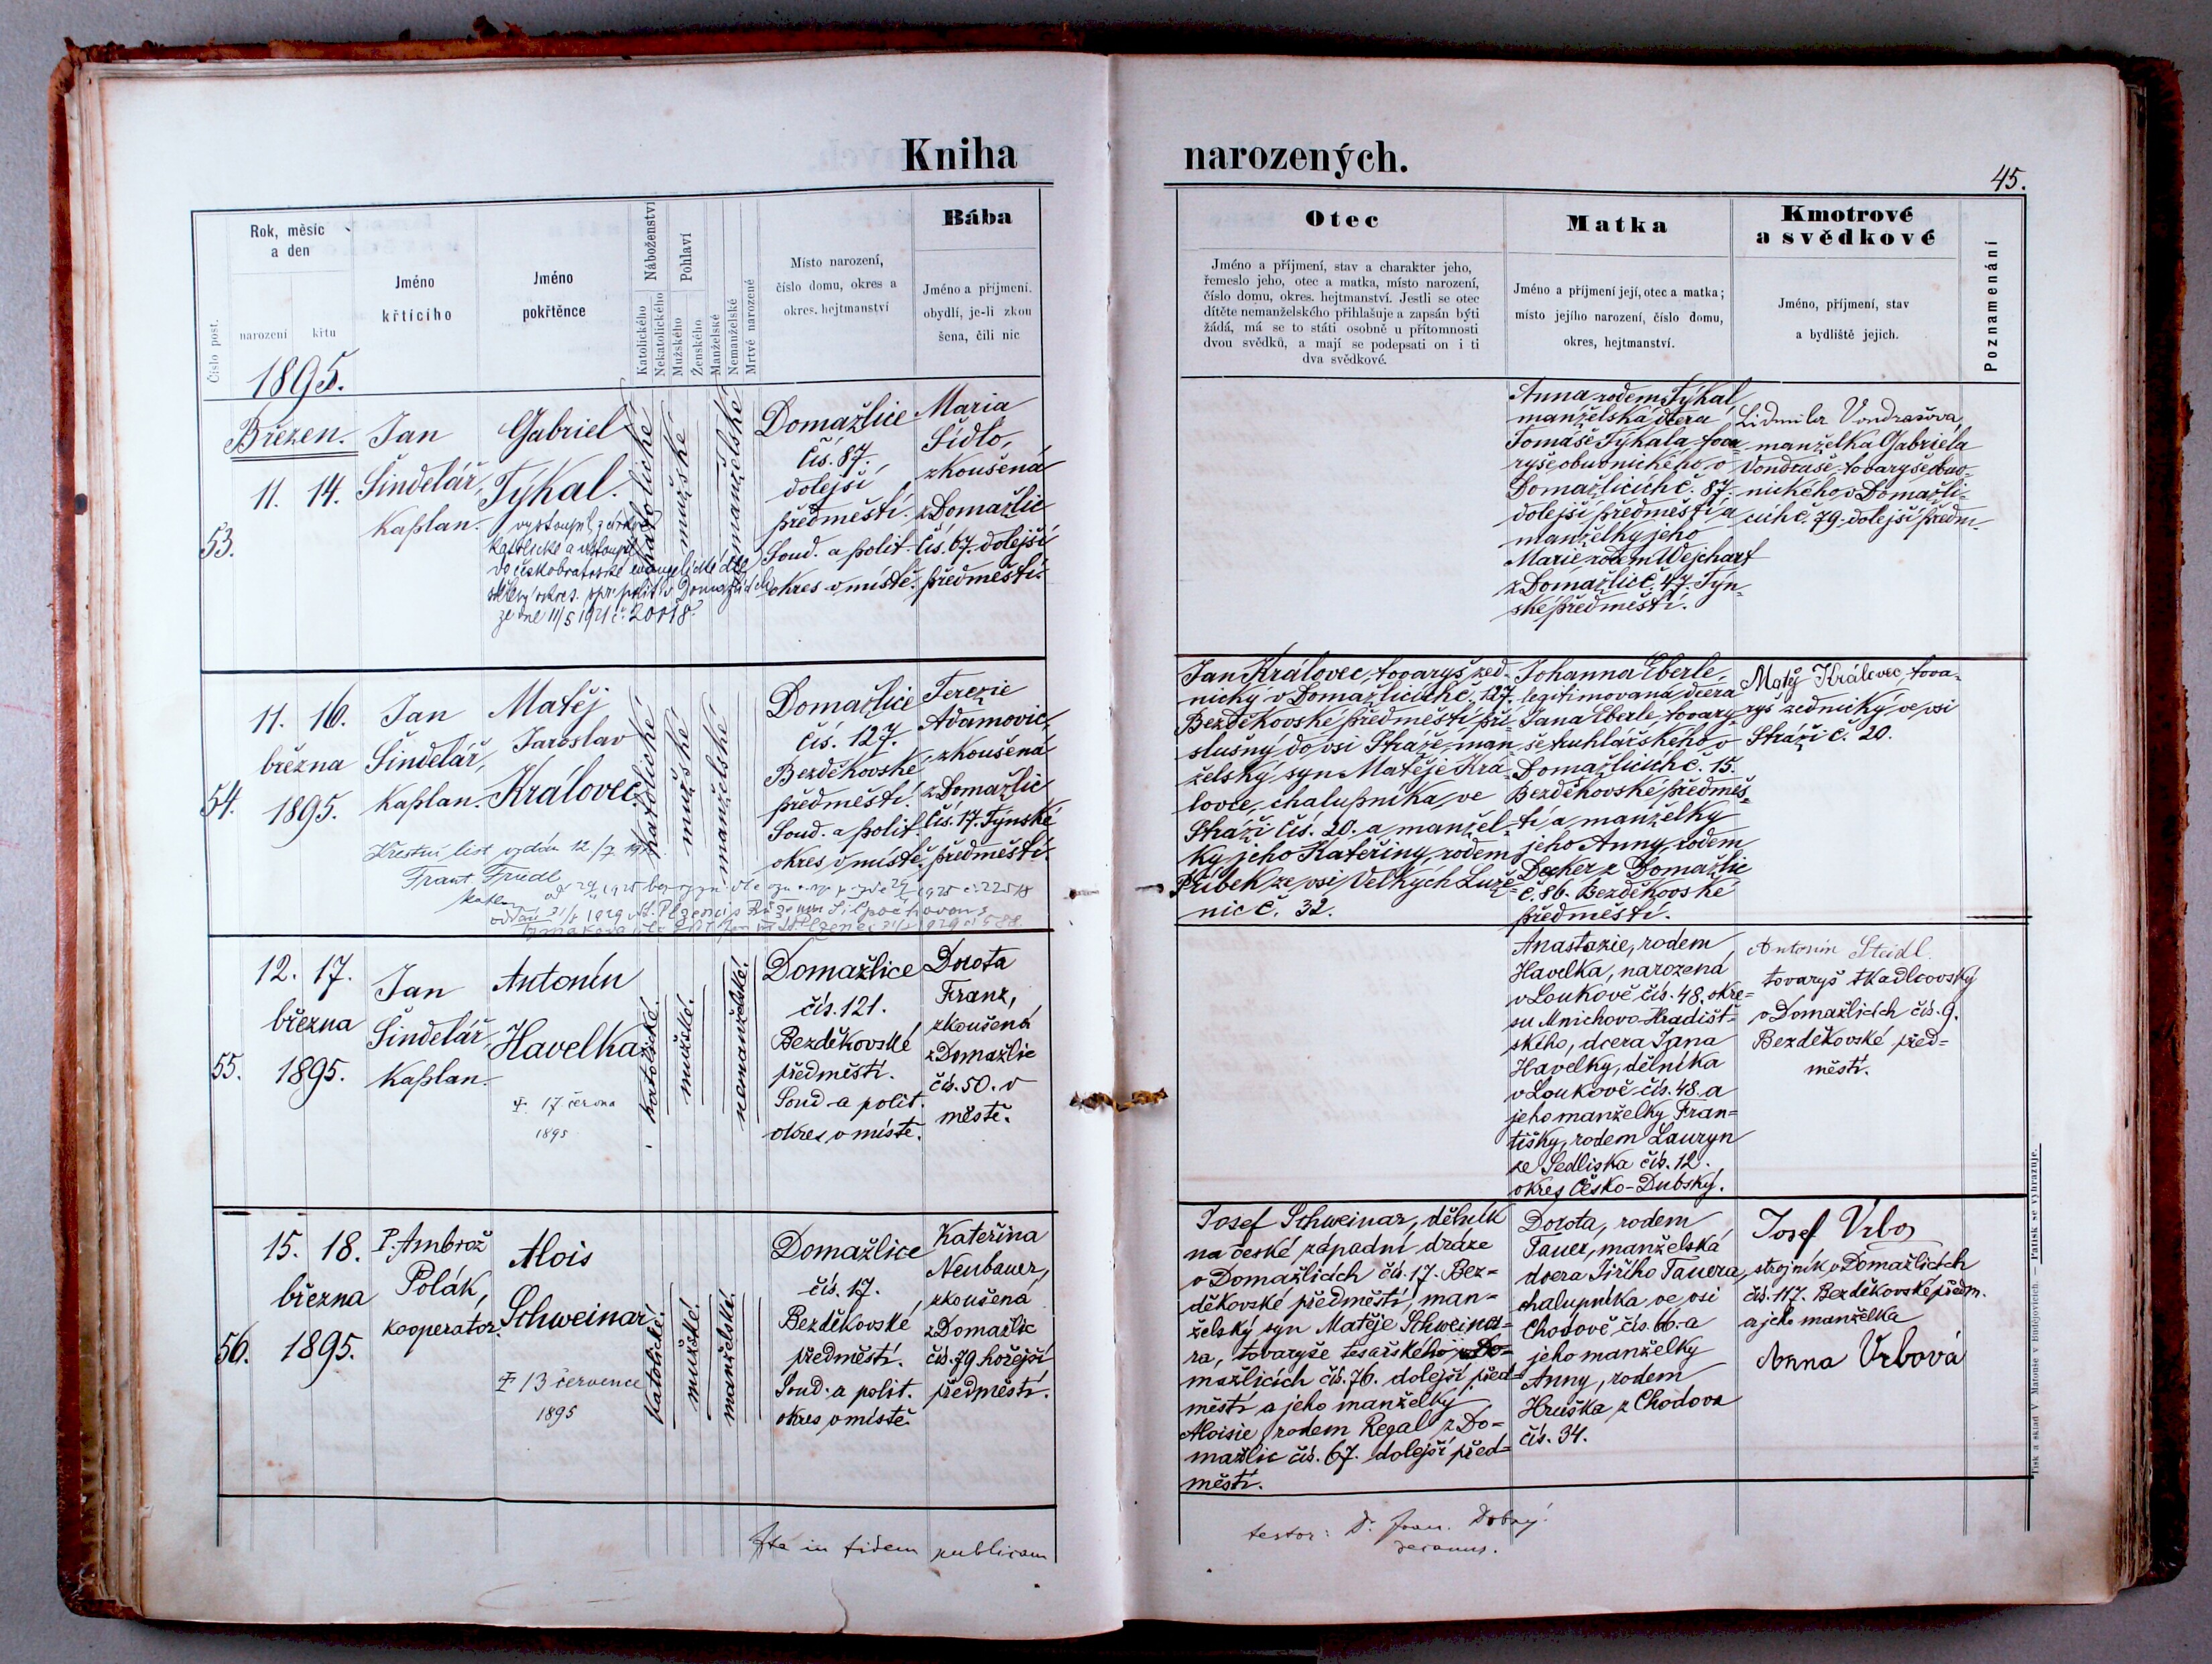 Kniha
narozených.
45.
Číslo post.
Rok, měsíc
a den
narození
křtu
Jméno
křtícího
Jméno
pokřtěnce
Náboženství
Katolického
Nekatolického
Pohlaví
Mužského
Ženského
Manželské
Nemanželské
Mrtvé narozené
Místo narození,
číslo domu, okres a
okres. hejtmanství
Bába
Jméno a příjmení.
obydlí, je-li zkou
šena, čili nic
Otec
Jméno a příjmení, stav a charakter jeho,
řemeslo jeho, otec a matka, místo narození,
číslo domu, okres. hejtmanství. Jestli se otec
dítěte nemanželského přihlašuje a zapsán býti
žádá, má se to státi osobně u přítomnosti
dvou svědků, a mají se podepsati on i ti
dva svědkové.
Matka
Jméno a příjmení její, otec a matka;
místo jejího narození, číslo domu,
okres, hejtmanství.
Kmotrové
a svědkové
Jméno, příjmení, stav
a bydliště jejich.
Poznamenání
1895.
Březen.
11. 14.
53.
Jan
Šindelář,
kaplan.
Gabriel
Týkal.
vystoupil z církve
katolické a vstoupil
do českobratrské evangelické dle
okres. polit. v Domažlicích
ze dne 11/5 1921 č. 20118.
katolické
mužské
nemanželské
Domažlice
čís. 87.
dolejší
předměstí.
Soud. a polit.
okres v místě.
Maria
Šídlo,
zkoušená
z Domažlic
čís. 67. dolejší
předměstí.
Anna rodem Týkal,
manželská dcera
Tomáše Týkala, tova-
ryše obuvnického v
Domažlicích č. 87.
dolejší předměstí a
manželky jeho
Marie rodem Wejchart
z Domažlic č. 47. Týn-
ské předměstí.
Lidmila Vondrašová,
manželka Gabriela
Vondraše, tovaryše obuv-
nického v Domažli-
cích č. 79. dolejší předm.
11. 16.
března
1895.
54.
Jan
Šindelář,
kaplan.
Matěj
Jaroslav
Královec
Křestní list vydán 12./7
Frant Friedl
kaplan
katolické
mužské
manželské
Domažlice
čís. 127.
Bezděkovské
předměstí.
Soud. a polit.
okres v místě.
Terezie
Adamovic,
zkoušená
z Domažlic
čís. 17. Týnské
předměstí.
Jan Královec, tovaryš zed-
nický v Domažlicích č. 127.
Bezděkovské předměstí pří-
slušný do vsi Stráže, man-
želský syn Matěje Krá-
lovce, chalupníka, ve
Stráži čís. 20. a manžel-
ky jeho Kateřiny, rodem
Příbek ze vsi Velkých Luže-
nic č. 32.
Johanna Eberle,
legitimovaná dcera
Jana Eberle, tovary-
še truhlářského, v
Domažlicích č. 15.
Bezděkovské předměs-
tí a manželky
jeho Anny, rodem
Decker z Domažlic
č. 86. Bezděkovské
předměstí.
Matěj Královec, tova-
ryš zednický, ve vsi
Stráži č. 20.
12. 17.
března
1895.
55.
Jan
Šindelář
kaplan.
Antonín
Havelka
✝ 17 června
1895
katolické.
mužské.
nemanželské.
Domažlice
čís. 121.
Bezděkovské
předměstí.
Soud a polit.
okres v místě.
Dorota
Franz,
zkoušená
z Domažlic
čís. 50. v
městě.
Anastazie, rodem
Havelka, narozená
v Loukově čís. 48. okre-
su Mnichovo-Hradišt-
ského, dcera Jana
Havelky, dělníka
v Loukově čís. 48. a
jeho manželky Fran-
tišky, rodem Lauryn
ze Sedliska čís. 12.
okres Česko-Dubský.
Antonín Steidl
tovaryš tkadlcovský
v Domažlicích čís. 9.
Bezděkovské před-
městí.
15. 18.
března
1895.
56.
P. Ambrož
Polák,
kooperátor.
Alois
Schweinar
✝ 13 července
1895
katolické.
mužské.
manželské.
Domažlice
čís. 17.
Bezděkovské
předměstí.
Soud. a polit.
okres v místě.
Kateřina
Neubauer,
zkoušená
z Domažlic
čís. 79 hořejší
předměstí.
Josef Schweinar, dělník
na české západní dráze
v Domažlicích čís. 17. Bez-
děkovské předměstí, man-
želský syn Matěje Schweina-
ra, tovaryše tesařského v Do-
mažlicích čís. 76. dolejší před-
městí a jeho manželky
Aloisie, rodem Regal z Do-
mažlic čís. 67. dolejší před-
městí.
Dorota, rodem
Tauer, manželská
dcera Jiřího Tauera,
chalupníka ve vsi
Chodově čís. 66. a
jeho manželky
Anny, rodem
Hruška z Chodova
čís. 34.
Josef Vrba
strojník v Domažlicích
čís. 117. Bezděkovské předm.
a jeho manželka
Anna Vrbová
Ita in fidem publicam
testor: Dr. Joan. Dobrý.
decanus.
Tisk a sklad V. Matouše v Budějovicích. — Patisk se vyhrazuje.